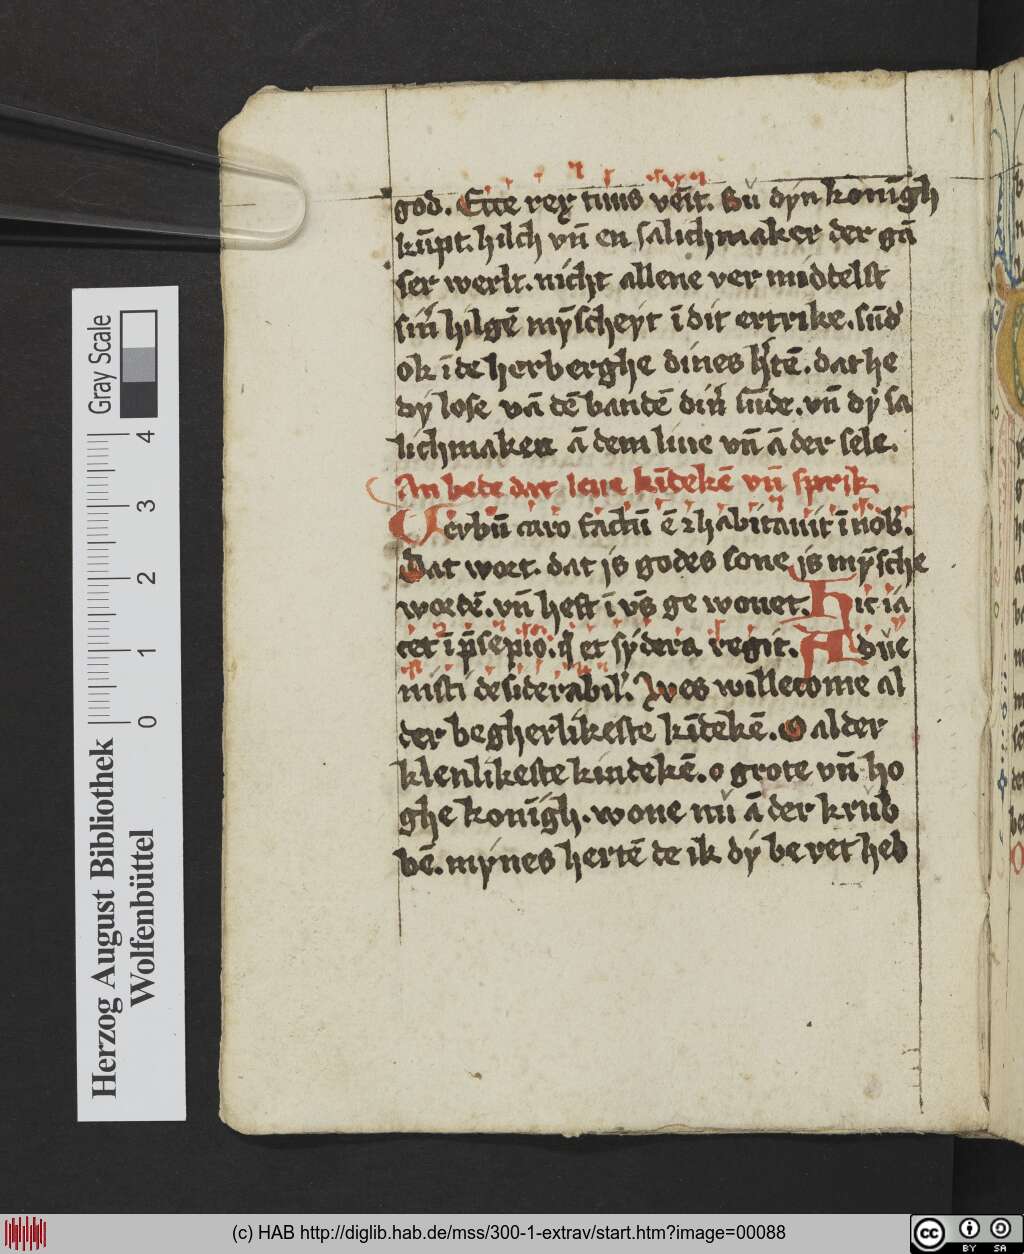 god. Ecce rex tuus veīt. Sů dyn konīgh
kūpt. hilch vn̄ en salichmaker der gā
ser werlt. nicht allene ver midtelst
sin͛ hilgē mȳscheyt ī dit ertrike. sūd͛
ok ī de herberghe dines h͛tē. dat he
dy lose vā dē bandē din͛ sūde. vn̄ dy sa
lichmaken ā dem liue vn̄ ā der sele.
An bede dat leue kīdekē vn̄ sprik
Verbū caro factū ē ⁊ habitauit ī nob͛.
Dat wort. dat is godes sone is mȳsche
wordē. vn̄ heft ī vn̄s ge wonet. Hic ia
cet ī p̄sepio. q̄ et sydera regit. Adůe
nisti desiderabil͛. Wes willecome al
der begherlikeste kīdekē. O alder
klenlikeste kindekē. o grote vn̄ ho
ghe konīgh. wone nů ā der krůb
bē. mynes hertē de ik dy be ret heb
Gray Scale
4
3
2
1
0
Herzog August Bibliothek
Wolfenbüttel
(c) HAB http://diglib.hab.de/mss/300-1-extrav/start.htm?image=00088
cc BY SA